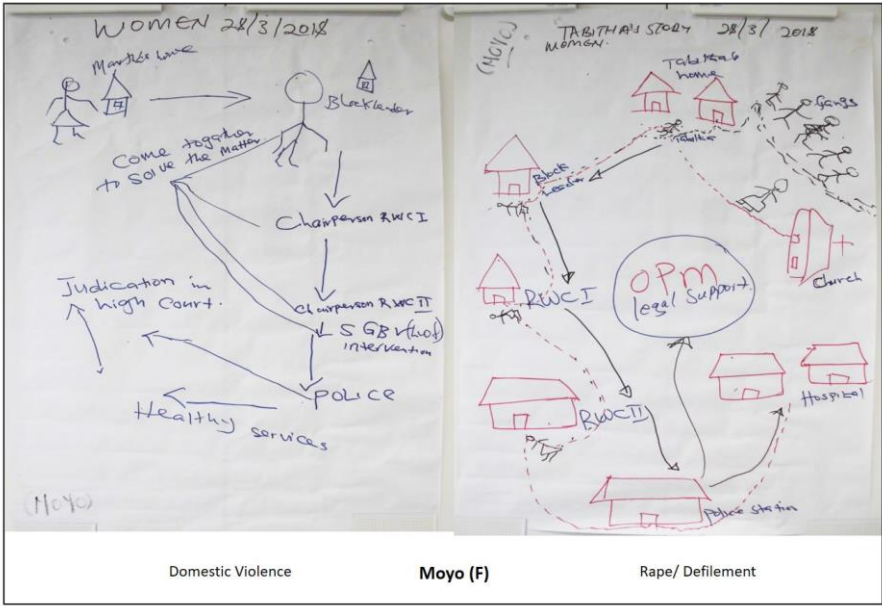 WOMEN 28/3/2018
Martha's home
Blockleader
Come together
to Solve the Matter
Chairperson RWC I
Chairperson RWC II
intervention
POLICE
Judication in
high Court.
Healthy services
(MOYO)
(MOYO)
TABITHA'S STORY 28/3/2018
WOMEN.
Tabitha's
home
Gangs
Tabitha
Block
Leader
Church
RWC I
OPM
legal Support.
RWC II
Hospital
Police station
Domestic Violence
Moyo (F)
Rape/ Defilement